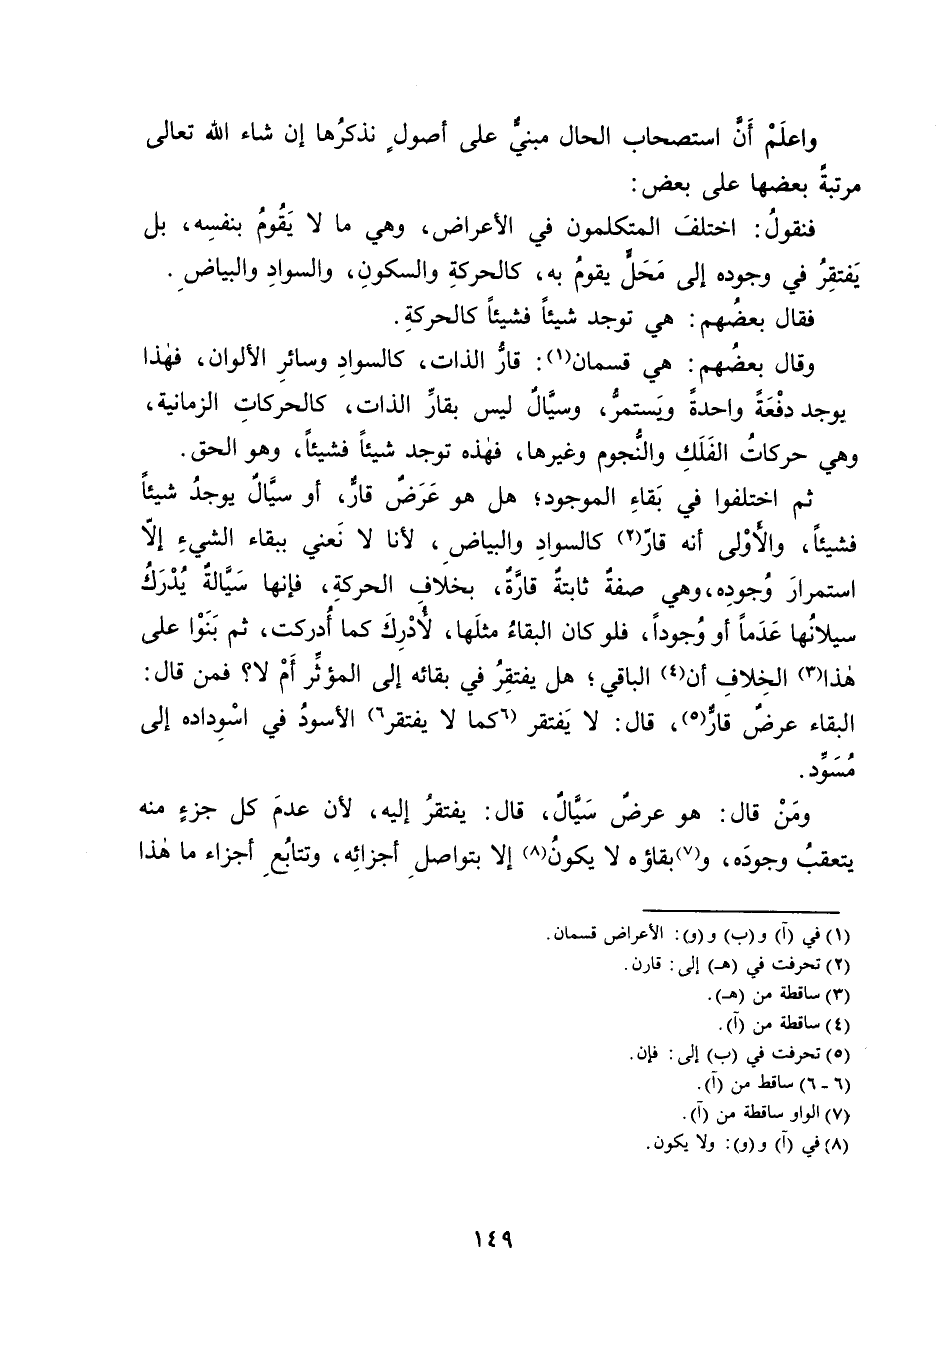 واعلَمْ أَنَّ استصحاب الحال مبنيٌّ على أصولٍ نذكرُها إن شاء الله تعالى
مرتبةً بعضها على بعض:
فنقولُ: اختلفَ المتكلمون في الأعراض، وهي ما لا يَقُومُ بنفسِه، بل
يَفتقِرُ في وجوده إلى مَحَلٍّ يقومُ به، كالحركةِ والسكونِ، والسوادِ والبياضِ.
فقال بعضُهم: هي توجد شيئاً فشيئاً كالحركةِ.
وقال بعضُهم: هي قسمان(١): قارُّ الذات، كالسوادِ وسائرِ الألوان، فهٰذا
يوجد دفْعَةً واحدةً ويَستمرُّ، وسيَّالٌ ليس بقارِّ الذات، كالحركاتِ الزمانية،
وهي حركاتُ الفَلَكِ والنُّجوم وغيرها، فهٰذه توجد شيئاً فشيئاً، وهو الحق.
ثم اختلفوا في بَقاءِ الموجود؛ هل هو عَرَضٌ قارٌّ، أو سيَّالٌ يوجدُ شيئاً
فشيئاً، والأَوْلى أنه قارّ(٢) كالسوادِ والبياضِ، لأنا لا نَعني ببقاء الشيءِ إلّا
استمرارَ وُجودِه، وهي صفةٌ ثابتةٌ قارَّةٌ، بخلافِ الحركة، فإنها سَيَّالةٌ يُدْرَكُ
سيلانُها عَدَماً أو وُجوداً، فلو كان البقاءُ مثلَها، لأُدْرِكَ كما أُدركت، ثم بَنَوْا على
هٰذا(٣) الخِلافِ أن(٤) الباقي؛ هل يفتقِرُ في بقائه إلى المؤثِّر أَمْ لا؟ فمن قال:
البقاء عرضٌ قارٌّ(٥)، قال: لا يَفتقر (٦كما لا يفتقر٦) الأسودُ في اسْوِداده إلى
مُسَوِّد.
ومَنْ قال: هو عرضٌ سَيَّالٌ، قال: يفتقرُ إليه، لأن عدمَ كل جزءٍ منه
يتعقبُ وجودَه، و(٧)بقاؤه لا يكونُ(٨) إلا بتواصلِ أجزائِه، وتتابُعِ أجزاء ما هٰذا
(١) في (آ) و(ب) و(و): الأعراض قسمان.
(٢) تحرفت في (هـ) إلى: قارن.
(٣) ساقطة من (هـ).
(٤) ساقطة من (آ).
(٥) تحرفت في (ب) إلى: فإن.
(٦ - ٦) ساقط من (آ).
(٧) الواو ساقطة من (آ).
(٨) في (آ) و(و): ولا يكون.
١٤٩